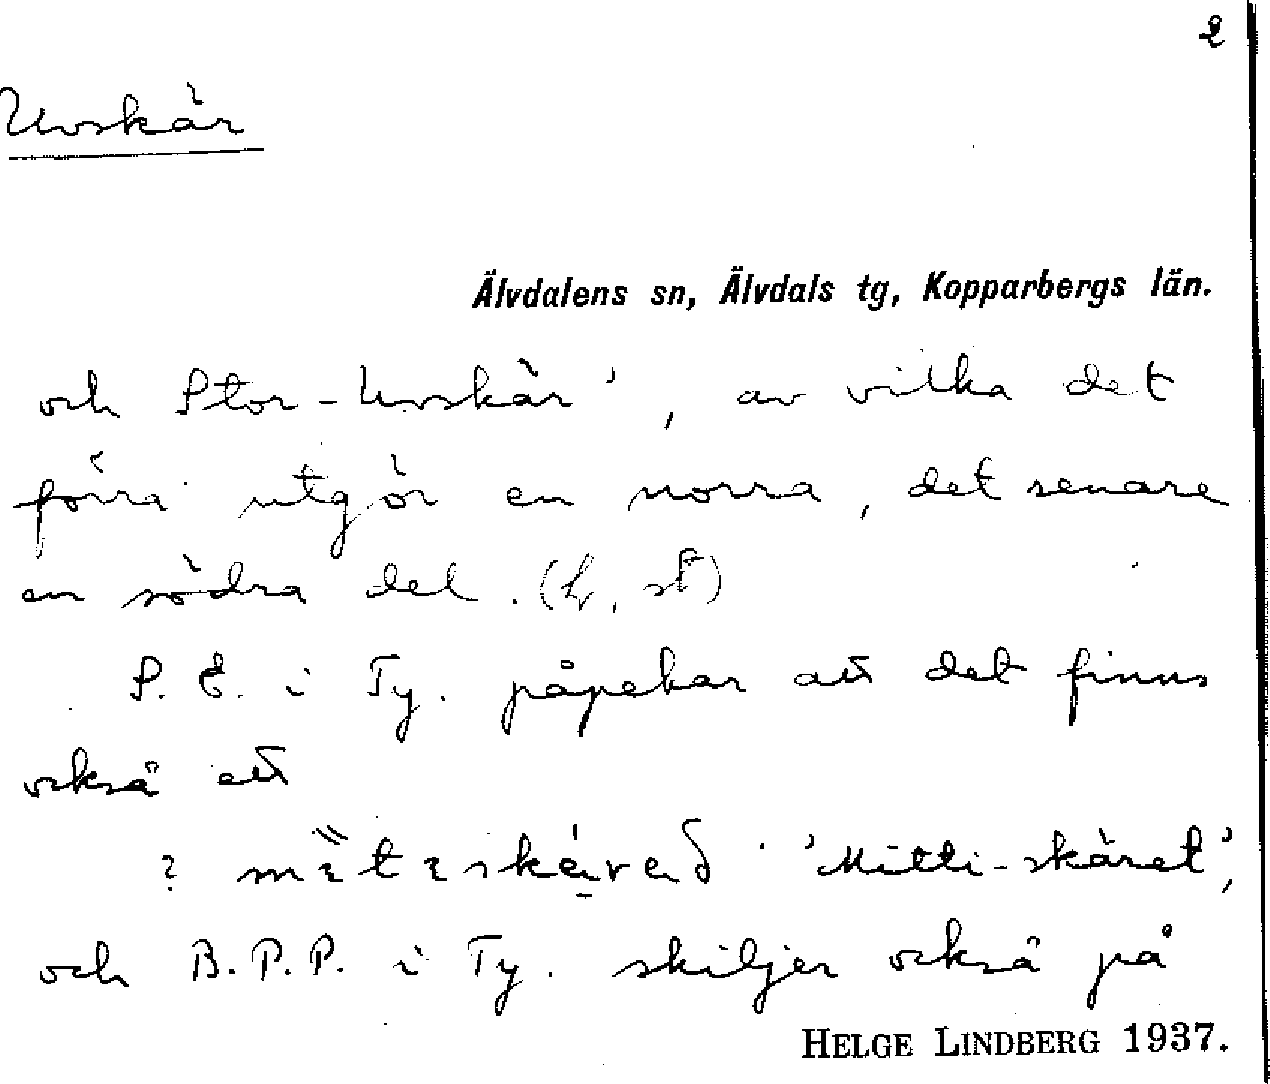 2
Uvskär
Älvdalens sn, Älvdals tg, Kopparbergs län.
och Stor-Uvskär', av vilka det
förra utgör en norra, det senare
en södra del. (L, st)
S. E. i Ty. påpekar att det finns
också ett
'Mitti-skäret',
och B. P. P. i Ty. skiljer också på
HELGE LINDBERG 1937.